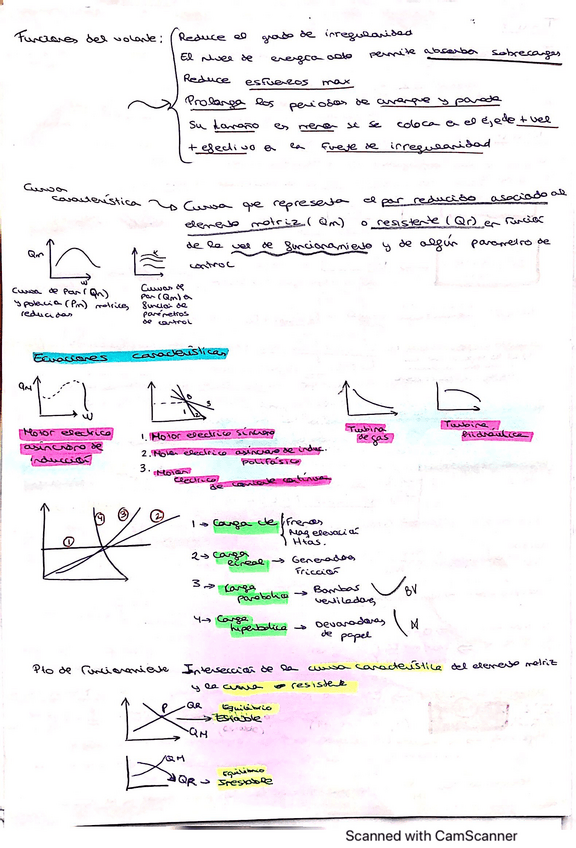 Funciones del volante: Reduce el grado de irregularidad
El nivel de energía alto permite absorber sobrecargas
Reduce esfuerzos max
Prolonga los periodos de arranque y parada
Su tamaño es menor si se coloca en el eje de + vel
+ efectivo en la fuente de irregularidad
Curva
característica → Curva que representa el par reducido asociado al
elemento motriz (Qm) o resistente (Qr) en función
de la vel de funcionamiento y de algún parametro de
control
Qm
W
K
Curva de Par (Qm)
y potencia (Pm) motrices
reducidas
Curvas de
Par (Qm) en
función de
parámetros
de control
Ecuaciones características
QM
W
Motor electrico
asincrono de
inducción
1. Motor electrico síncrono
2. Motor electrico asincrono de induc.
Polifásico
3. Motor
electrico
de corriente continua
Turbina
de gas
Turbina
Hidraulica
1
4
3
2
1 → Carga cte Frenos
Maq elevación
Htas.
2 → Carga
lineal → Generadores
Fricción
3 → Carga
parabolica → Bombas
ventiladores
4 → Carga
hiperbolica → Devanadoras
de papel
Pto de funcionamiento Intersección de la curva característica del elemento motriz
y la curva resistente
P
QR
QM
Equilibrio
Estable
QM
QR → Equilibrio
Inestable
Scanned with CamScanner